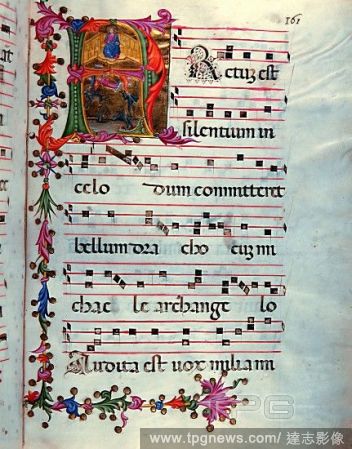 161
F Actuz est
silentium in
celo dum committeret
bellum dra cho cuz mi
chae le archange lo
Audita est uox milia mi
TPG
www.tpgnews.com/ 達志影像